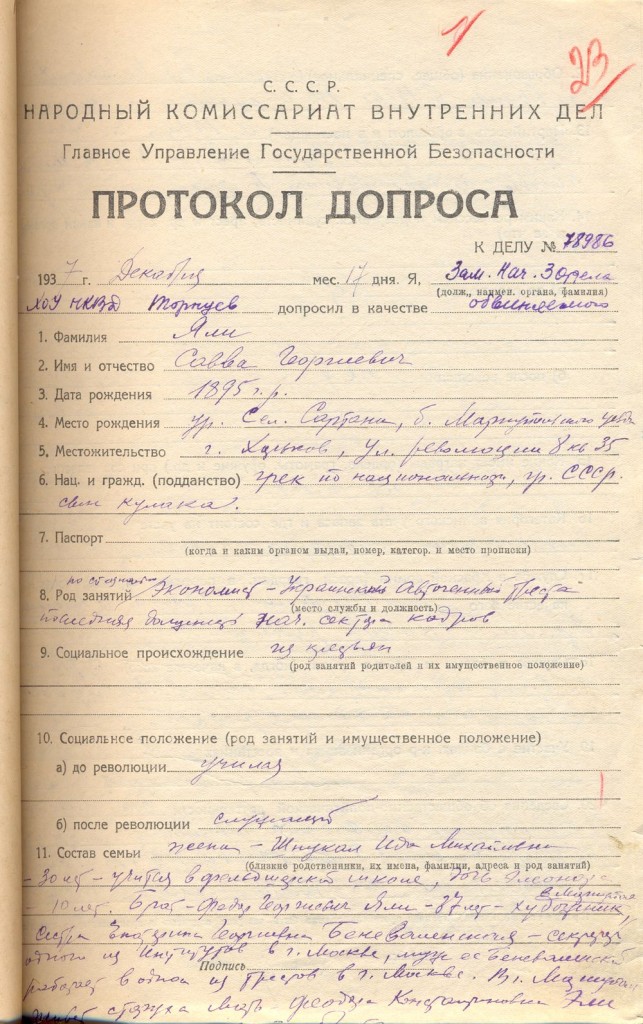 1/
23/
С. С. С. Р.
НАРОДНЫЙ КОМИССАРИАТ ВНУТРЕННИХ ДЕЛ
Главное Управление Государственной Безопасности
ПРОТОКОЛ ДОПРОСА
К ДЕЛУ № 78986
1937 г. Декабря мес. 17 дня. Я, Зам. Нач. 3 отдела
(долж., наимен. органа, фамилия)
ХоУ НКВД Торнуев допросил в качестве обвиняемого
1. Фамилия Яли
2. Имя и отчество Савва Георгиевич
3. Дата рождения 1895 г. р.
4. Место рождения ур. сел. Сартана, б. Мариупольского
5. Местожительство г. Харьков, ул. революции 8 кв 35
6. Нац. и гражд. (подданство) грек по национальности, гр. СССР.
сын кулака.
7. Паспорт
(когда и каким органом выдан, номер, категор. и место прописки)
8. Род занятий Экономист – Украинский Автогенный трест
(место службы и должность)
последняя должность нач. сектора кадров
9. Социальное происхождение из крестьян
(род занятий родителей и их имущественное положение)
10. Социальное положение (род занятий и имущественное положение)
а) до революции учился
б) после революции служащий
11. Состав семьи жена – Шпукал Ида Михайловна
(близкие родственники, их имена, фамилии, адреса и род занятий)
– 30 лет – учится в фельдшерской школе, дочь Элеонора
– 10 лет. Брат – Федор Георгиевич Яли – 37 лет – художник,
в Мариуполе
сестра Екатерина Георгиевна – секретарь
одного из Институтов в г. Москве, муж ее
работает в одном из трестов в г. Москве. В г. Мариуполе
Подпись
живет старуха мать Феодора Константиновна Яли